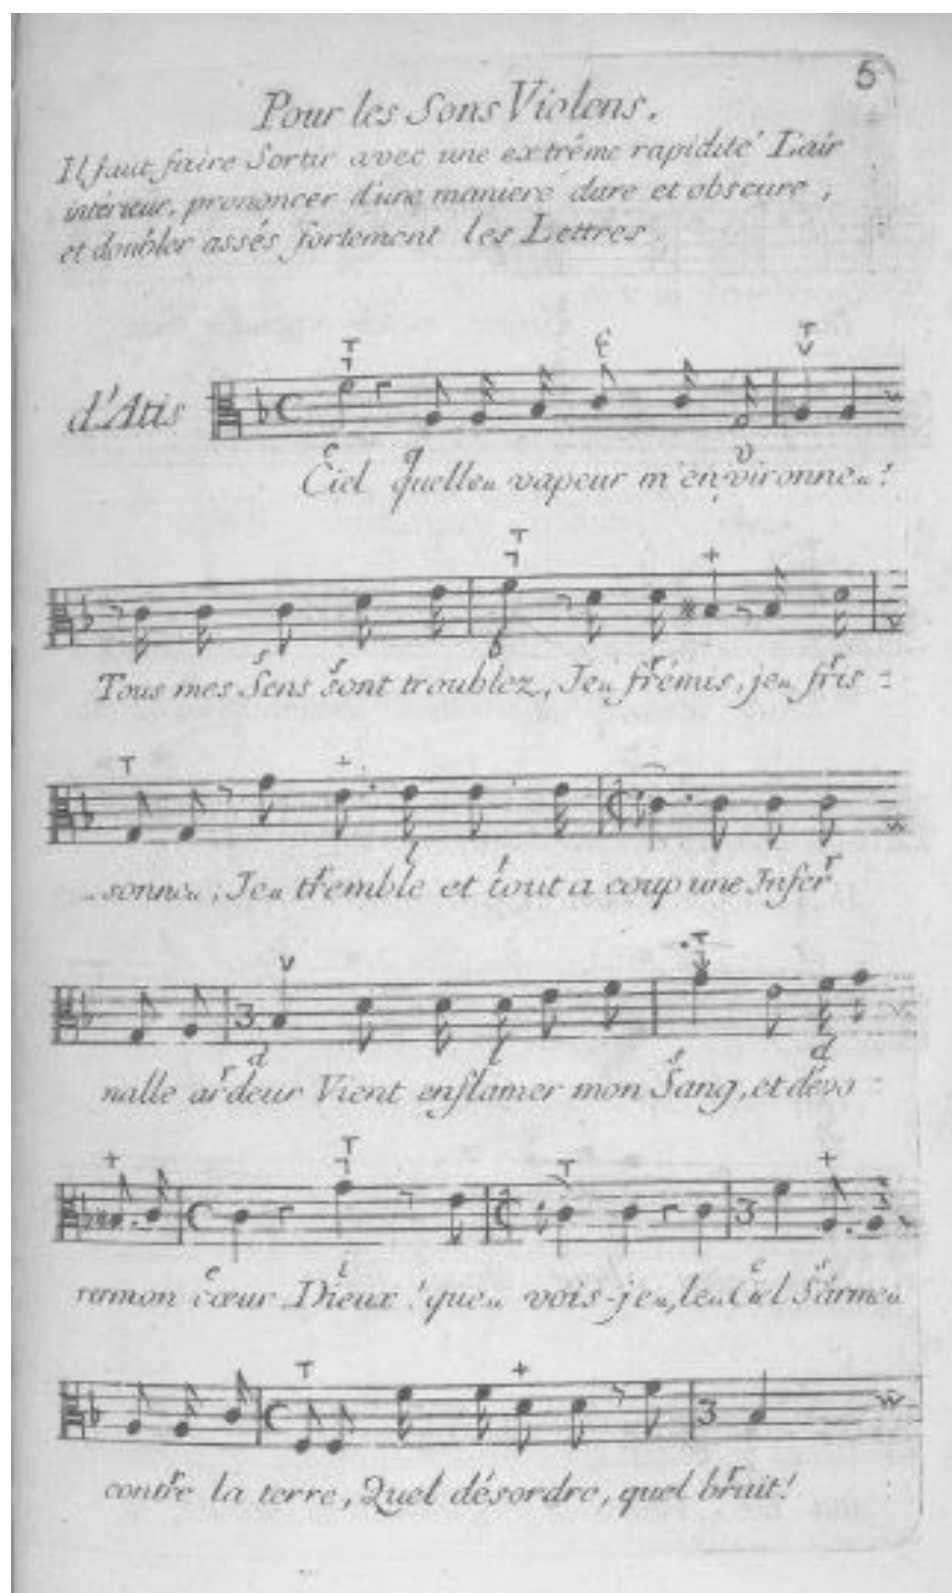 5
Pour les Sons Violens.
Il faut faire Sortir avec une extrême rapidité L'air
intérieur, prononcer d'une maniere dure et obscure ;
et doubler assés fortement les Lettres.
d'Atis
Ciel quelleu vapeur m'environneu !
Tous mes Sens sont troublez, Jeu frémis, jeu fris =
_sonneu ; Jeu tremble et tout a coup une Infer
nalle ardeur Vient enflamer mon Sang, et dévo =
rer mon cœur Dieux ! queu vois-jeu, leu Ciel S'armeu
contre la terre, Quel désordre, quel bruit !